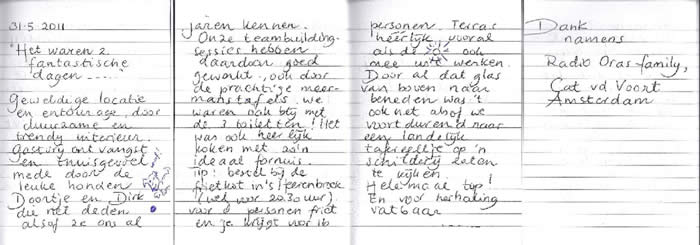 31-5 2011
Het waren 2
fantastische
dagen .....
Geweldige locatie
en entourage, door
duurzame en
trendy interieur.
Gastvrij ontvangst
en thuisgevoel
mede door de
leuke honden
Doortje en Dirk
die net deden
alsof ze ons al
jaren kennen.
Onze teambuilding-
sessies hebben
daardoor goed
gewerkt, ook door
de prachtige meer-
manstafels. We
waren ook blij met
de 3 toiletten! Het
was ook heerlijk
koken met zo'n
ideaal fornuis.
Tip: bestel bij de
frietkot in 's Heerenbroek
(wel voor 20.30 uur)
voor 6 personen friet
en je krijgt voor 16
personen. Terras
heerlijk vooral
als de ook
mee wil werken.
Door al dat glas
van boven naar
beneden was 't
ook net alsof we
voortdurend naar
een landelijk
tafereeltje op 'n
schilderij zaten
te kijken.
Helemaal top!
En voor herhaling
vatbaar
Dank
namens
Radio Oras-family,
Cat vd Voort
Amsterdam